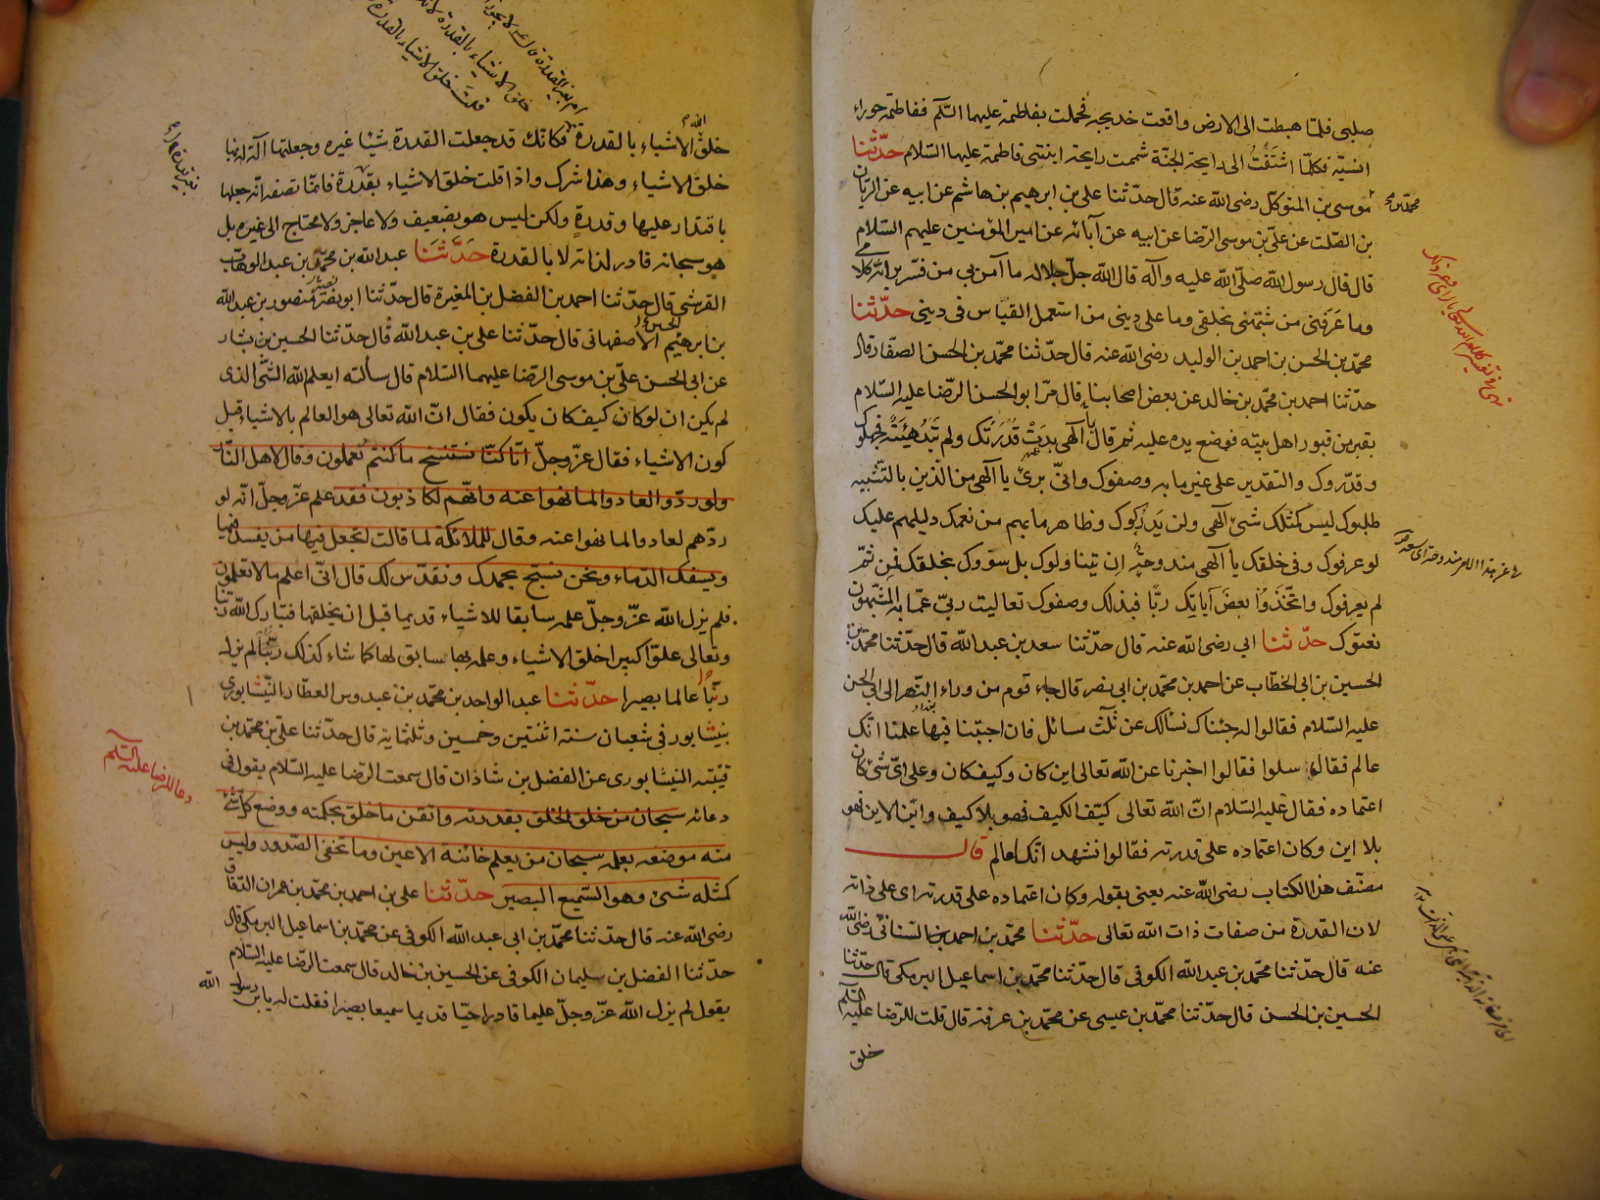 صلبى فلما هبطت الى الارض واقعت خديجة فحملت بفاطمة عليهما السلم ففاطمة حوراء
انسية فكلما اشتقت الى رايحة الجنة شممت رايحة ابنتى فاطمة عليها السلام حدثنا
محمد بن موسى بن المتوكل رضى الله عنه قال حدثنا على بن ابرهيم بن هاشم عن ابيه عن الريان
بن الصلت عن على بن موسى الرضا عن ابيه عن آبائه عن امير المؤمنين عليهم السلام
قال قال رسول الله صلى الله عليه وآله قال الله جل جلاله ما آمن بى من فسر برأيه كلامى
وما عرفنى من شبهنى بخلقى وما على دينى من استعمل القياس فى دينى حدثنا
محمد بن الحسن بن احمد بن الوليد رضى الله عنه قال حدثنا محمد بن الحسن الصفار قال
حدثنا احمد بن محمد بن خالد عن بعض اصحابنا قال مر ابو الحسن الرضا عليه السلام
بقبر من قبور اهل بيته فوضع يده عليه ثم قال الهى بدت قدرتك ولم تبد هيئة فجهلوك
وقدروك والتقدير على غير ما به وصفوك وانى برئ يا الهى من الذين بالتشبيه
طلبوك ليس كمثلك شئ الهى ولن يدركوك وظاهر ما بهم من نعمك دليلهم عليك
لو عرفوك وفى خلقك يا الهى مندوحة ان يتناولوك بل سووك بخلقك فمن ثم
لم يعرفوك واتخذوا بعض آياتك ربا فبذلك وصفوك تعاليت ربى عما به المشبهون
نعتوك حدثنا ابى رضى الله عنه قال حدثنا سعد بن عبد الله قال حدثنا محمد بن
الحسين بن ابى الخطاب عن احمد بن محمد بن ابى نصر قال جاء قوم من وراء النهر الى ابى الحسن
عليه السلام فقالوا له جئناك نسألك عن ثلث مسائل فان اجبتنا فيها علمنا انك
عالم فقال سلوا فقالوا اخبرنا عن الله تعالى اين كان وكيف كان وعلى اى شئ كان
اعتماده فقال عليه السلام ان الله تعالى كيف الكيف فهو بلا كيف واين الاين فهو
بلا اين وكان اعتماده على قدرته فقالوا نشهد انك عالم قال
مصنف هذا الكتاب رضى الله عنه يعنى بقوله وكان اعتماده على قدرته اى على ذاته
لان القدرة من صفات ذات الله تعالى حدثنا محمد بن احمد السنانى رضى الله
عنه قال حدثنا محمد بن عبد الله الكوفى قال حدثنا محمد بن اسماعيل البرمكى قال حدثنا
الحسين بن الحسن قال حدثنا محمد بن عيسى عن محمد بن عرفة قال قلت للرضا عليه السلم
خلق
خلق الله الاشياء بالقدرة فكانك قد جعلت القدرة شيئا غيره وجعلتها آلة له بها
خلق الاشياء وهذا شرك واذا قلت خلق الاشياء بقدرة فانما تصفه انه جعلها
باقتدار عليها وقدرة ولكن ليس هو بضعيف ولا عاجز ولا محتاج الى غيره بل
هو سبحانه قادر لذاته لا بالقدرة حدثنا عبد الله بن محمد بن عبد الوهاب
القرشى قال حدثنا احمد بن الفضل بن المغيرة قال حدثنا ابو نصر منصور بن عبد الله
بن ابرهيم الاصفهانى قال حدثنا على بن عبد الله قال حدثنا الحسين بن بشار
عن ابى الحسن على بن موسى الرضا عليهما السلام قال سألته ايعلم الله الشئ الذى
لم يكن ان لو كان كيف كان يكون فقال ان الله تعالى هو العالم بالاشياء قبل
كون الاشياء فقال عز وجل انا كنا نستنسخ ما كنتم تعملون وقال لاهل النار
ولو ردوا لعادوا لما نهوا عنه وانهم لكاذبون فقد علم عز وجل انه لو
ردهم لعادوا لما نهوا عنه وقال للملائكة لما قالت اتجعل فيها من يفسد فيها
ويسفك الدماء ونحن نسبح بحمدك ونقدس لك قال انى اعلم ما لا تعلمون
فلم يزل الله عز وجل علمه سابقا للاشياء قديما قبل ان يخلقها فتبارك الله ربنا
وتعالى علوا كبيرا خلق الاشياء وعلمه بها سابق لها كما شاء كذلك ربنا لم يزل
ربا عالما بصيرا حدثنا عبد الواحد بن محمد بن عبدوس العطار النيشابورى
بنيشابور فى شعبان سنة اثنتين وخمسين وثلثماية قال حدثنا على بن محمد بن
قتيبة النيشابورى عن الفضل بن شاذان قال سمعت الرضا عليه السلام يقول فى
دعائه سبحان من خلق الخلق بقدرته واتقن ما خلق بحكمته ووضع كل شئ
منه موضعه بعلمه سبحان من يعلم خائنة الاعين وما تخفى الصدور وليس
كمثله شئ وهو السميع البصير حدثنا على بن احمد بن محمد بن عمران الدقاق
رضى الله عنه قال حدثنا محمد بن ابى عبد الله الكوفى عن محمد بن اسماعيل البرمكى قال
حدثنا الفضل بن سليمان الكوفى عن الحسين بن خالد قال سمعت الرضا عليه السلام
يقول لم يزل الله عز وجل عليما قادرا حيا قديما سميعا بصيرا فقلت له يا بن رسول الله
دعا للرضا عليه السلم
ام بغير القدرة قال لا يجوز
خلق الاشياء بالقدرة لا
قلت خلق الاشياء بالقدرة